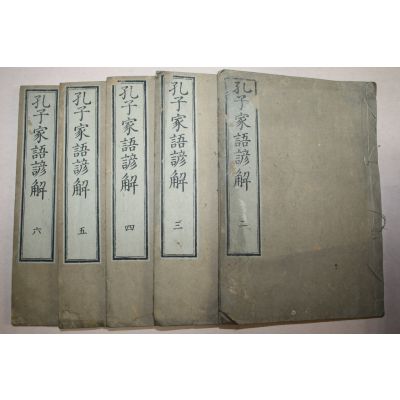 孔子家語諺解 二
孔子家語諺解 三
孔子家語諺解 四
孔子家語諺解 五
孔子家語諺解 六